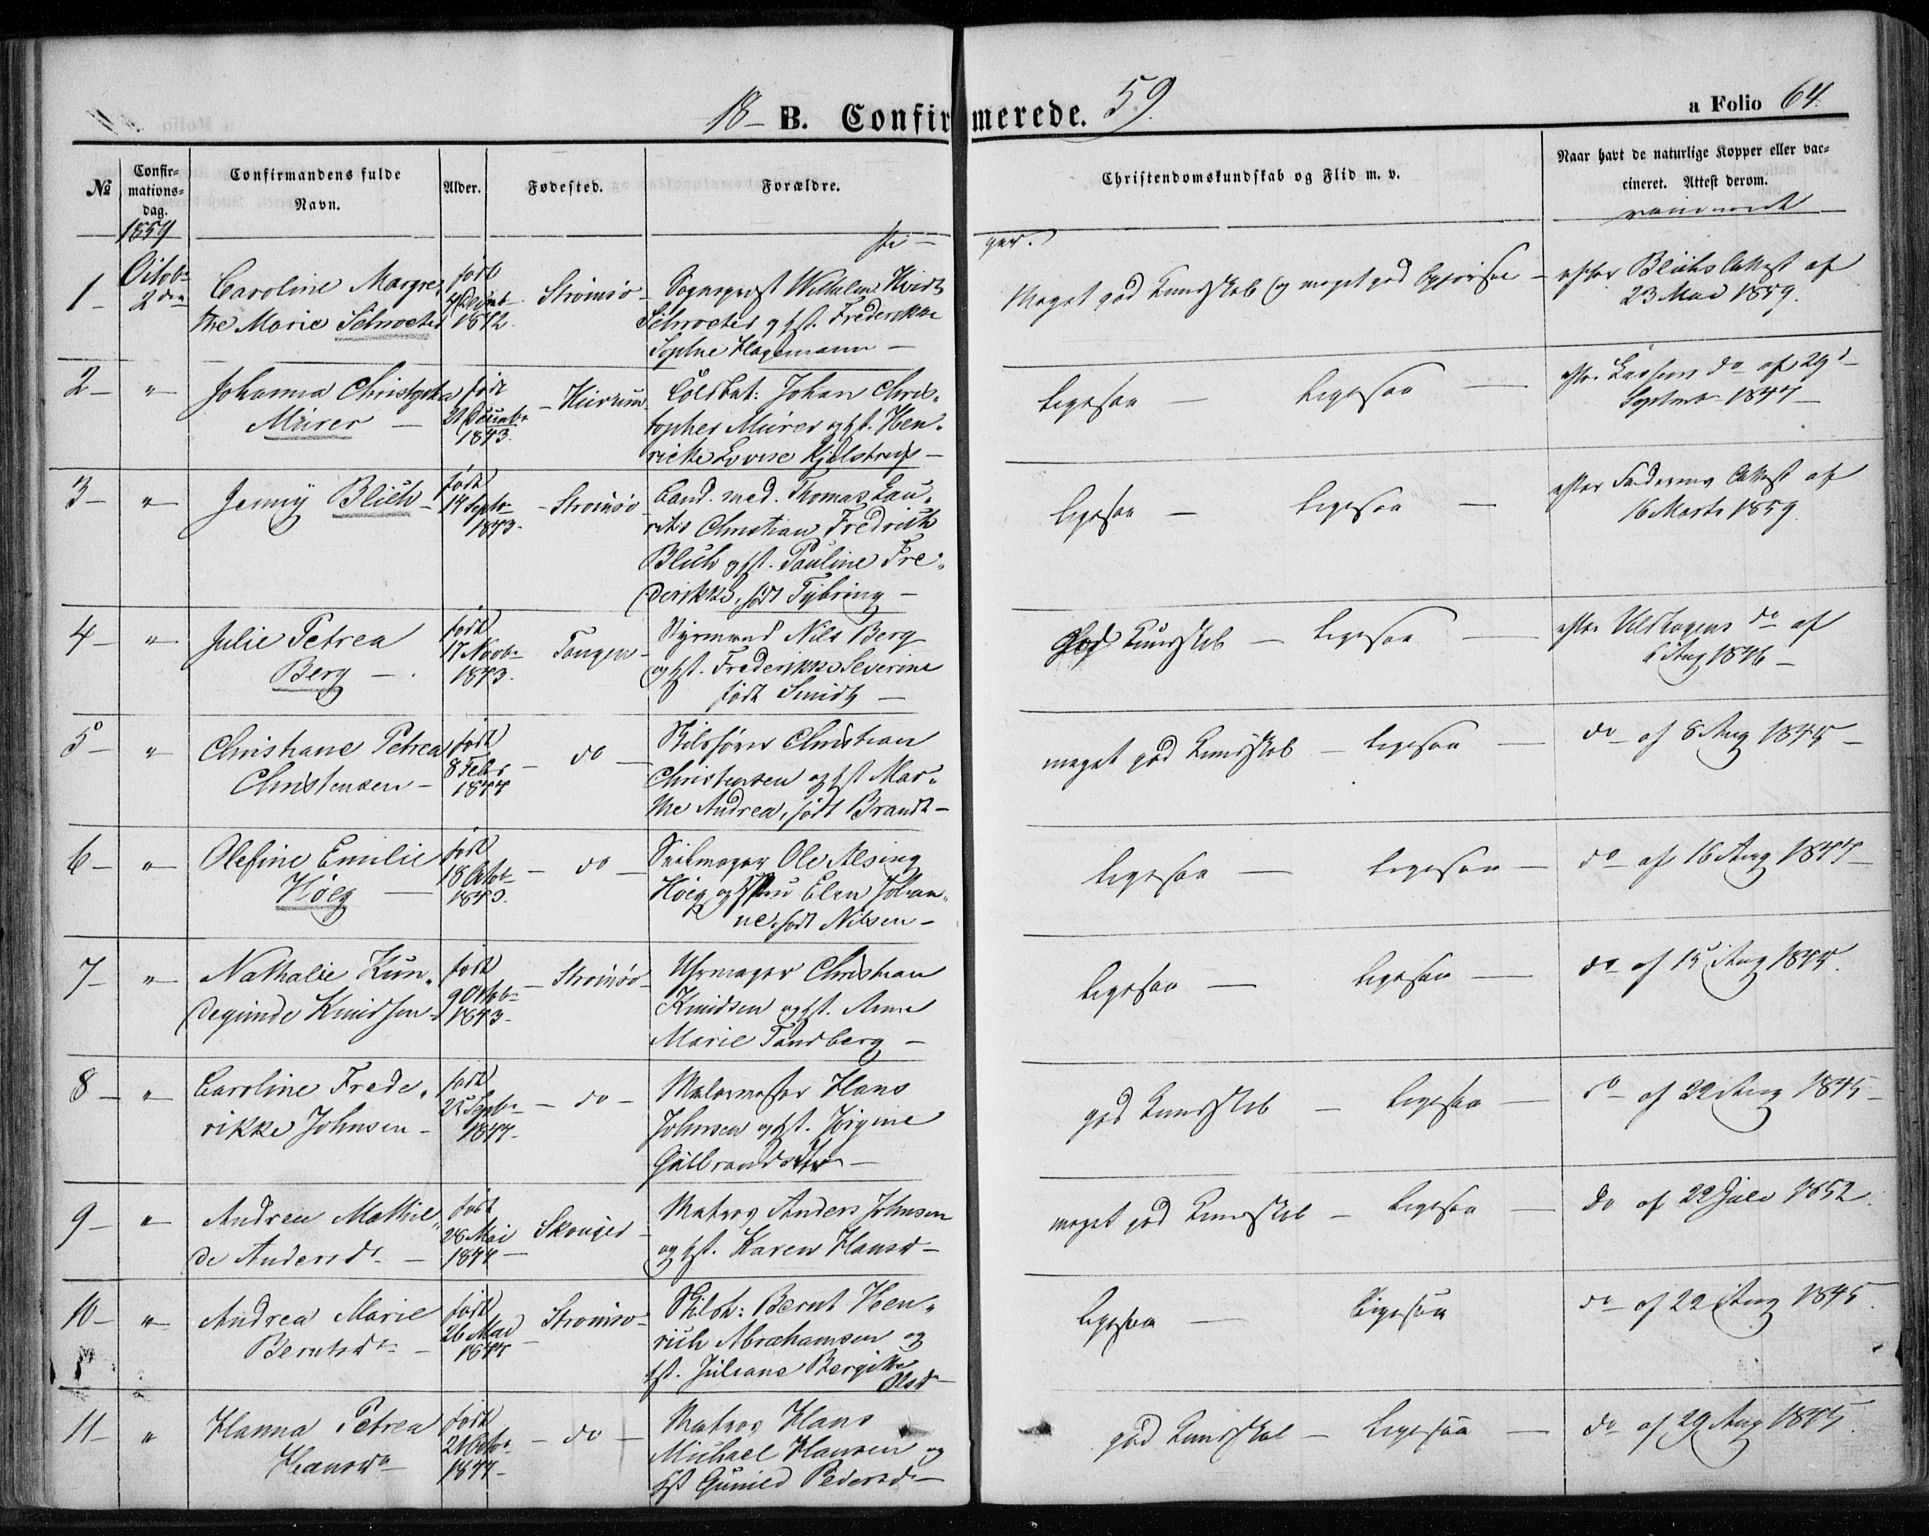 18 – B. Confirmerede. 59.
a Folio 64.
No
Confirmationsdag.
Confirmandens fulde Navn.
Alder.
Fødested.
Forældre.
Christendomskundskab og Flid m. v.
Naar havt de naturlige Kopper eller vaccineret. Attest derom.
1859
Piger.
vaccineret
1 – Octobr 2den
Caroline Margrethe Marie Schroeter
født 1842.
Strømsø
Sogneprest Wilhelm Hvidt
Schroeter og Hst. Frederikke
Sophie Hagemann –
Meget god Kundskab og meget god Opførsel –
efter Blichs Attest af
23 Mai 1859.
2 – "
Johanna Christopha
Mürer –
født 21 Decembr 1843.
– Hurum
Toldbet: Johan Chris-
topher Mürer og Hst. Hen-
riette Lovise Kjelstrup –
ligesaa – ligesaa –
efter Larsens do af 29d
September 1844 –
3 – "
Jenny Blich –
født 14 Septbr 1843.
– Strømsø
Cand. med. Thomas Lau-
rits Christian Fredrich
Blich og Hst. Pauline Fre-
derikke, født Tybring –
ligesaa – ligesaa –
efter Faderens Attest af
16 Marts 1859.
4 – "
Julie Petrea
Berg –
født 17 Novbr 1843.
Tangen –
Styrmand Nils Berg
og Hst. Frederikke Severine
født Smidt –
God Kundskab – ligesaa –
efter do af
6 Aug 1846 –
5 – "
Christiane Petrea
Christensen –
født 8 Febr 1844
– do –
Skibsfører Christian
Christensen og Hst Mar-
the Andrea, født Brandt –
meget god Kundskab – ligesaa –
do af 8 Aug 1844 –
6 – "
Olefine Emilie
Höeg –
født 18 Octobr 1843.
– do –
Seilmager Ole Alsing
Höeg og Hustru Elen Johan-
ne, født Nilsen –
ligesaa – ligesaa –
do af 16 Aug 1844 –
7 – "
Nathalie Kun-
degunde Knudsen –
født 9 Octobr 1843 –
– Strømsø –
Uhrmager Christian
Knudsen og Hst. Anne
Marie Tandberg –
ligesaa – ligesaa –
do af 15 Aug 1844.
8 – "
Caroline Frede-
rikke Johnsen –
født 25 Septbr 1844 –
– do –
Malermester Hans
Johnsen og Hst. Jörgine
Gulbrandsdtr –
god Kundskab – ligesaa –
do af 22 Aug 1845 –
9 – "
Andrea Mathil-
de Andersdr –
født 28 Mai 1844 –
Skouger –
Matros Anders Johnsen
og Hst. Karen Hansd –
meget god Kundskab – ligesaa –
do af 22 Juli 1852.
10 – "
Andrea Marie
Berntsdr –
født 26 Mai 1844
Strømsø –
Skibstm: Bernt Hen-
rich Abrahamsen og
Hst. Juliane Bergitte
Olsd –
ligesaa – ligesaa
do af 22 Aug 1845.
11 – "
Hanna Petrea
Hansdr
født 21 Octobr 1844 –
– do –
Matros Hans
Michael Hansen og
Hst Gunild Pedersdr –
god Kundskab – ligesaa –
do af 29 Aug 1845.